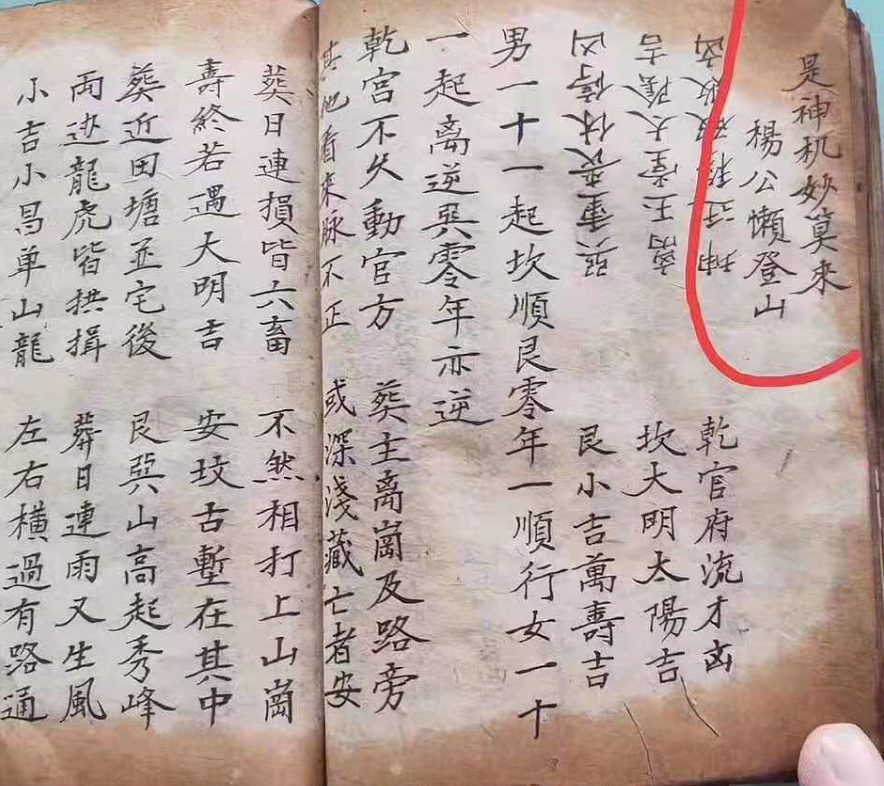 是神机妙算來
楊公懶登山
坤迁移殺敗凶
乾官府流才凶
离玉堂太陰吉
坎大明太陽吉
巽重喪休凶
艮小吉萬壽吉
男一十一起坎順艮零年一順行女一十
一起离逆巽零年亦逆
乾宮不久動官方 葵主离崗及路旁
其他看來脉不正 或深淺藏亡者安
葵日連損皆六畜 不然相打上山崗
壽終若遇大明吉 安坟古塹在其中
葵近田塘並宅後 艮巽山高起秀峰
両边龍虎皆拱揖 葬日連雨又生風
小吉小昌单山龍 左右橫過有路通